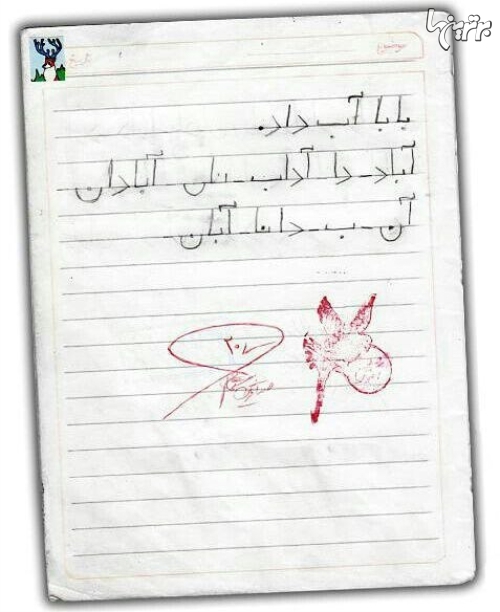 برترینها
موضوع
تاریخ
بابا آب داد.
آباد - دا آداب - نان آبادان
آن - ب - دانا - آبان -
۲۰